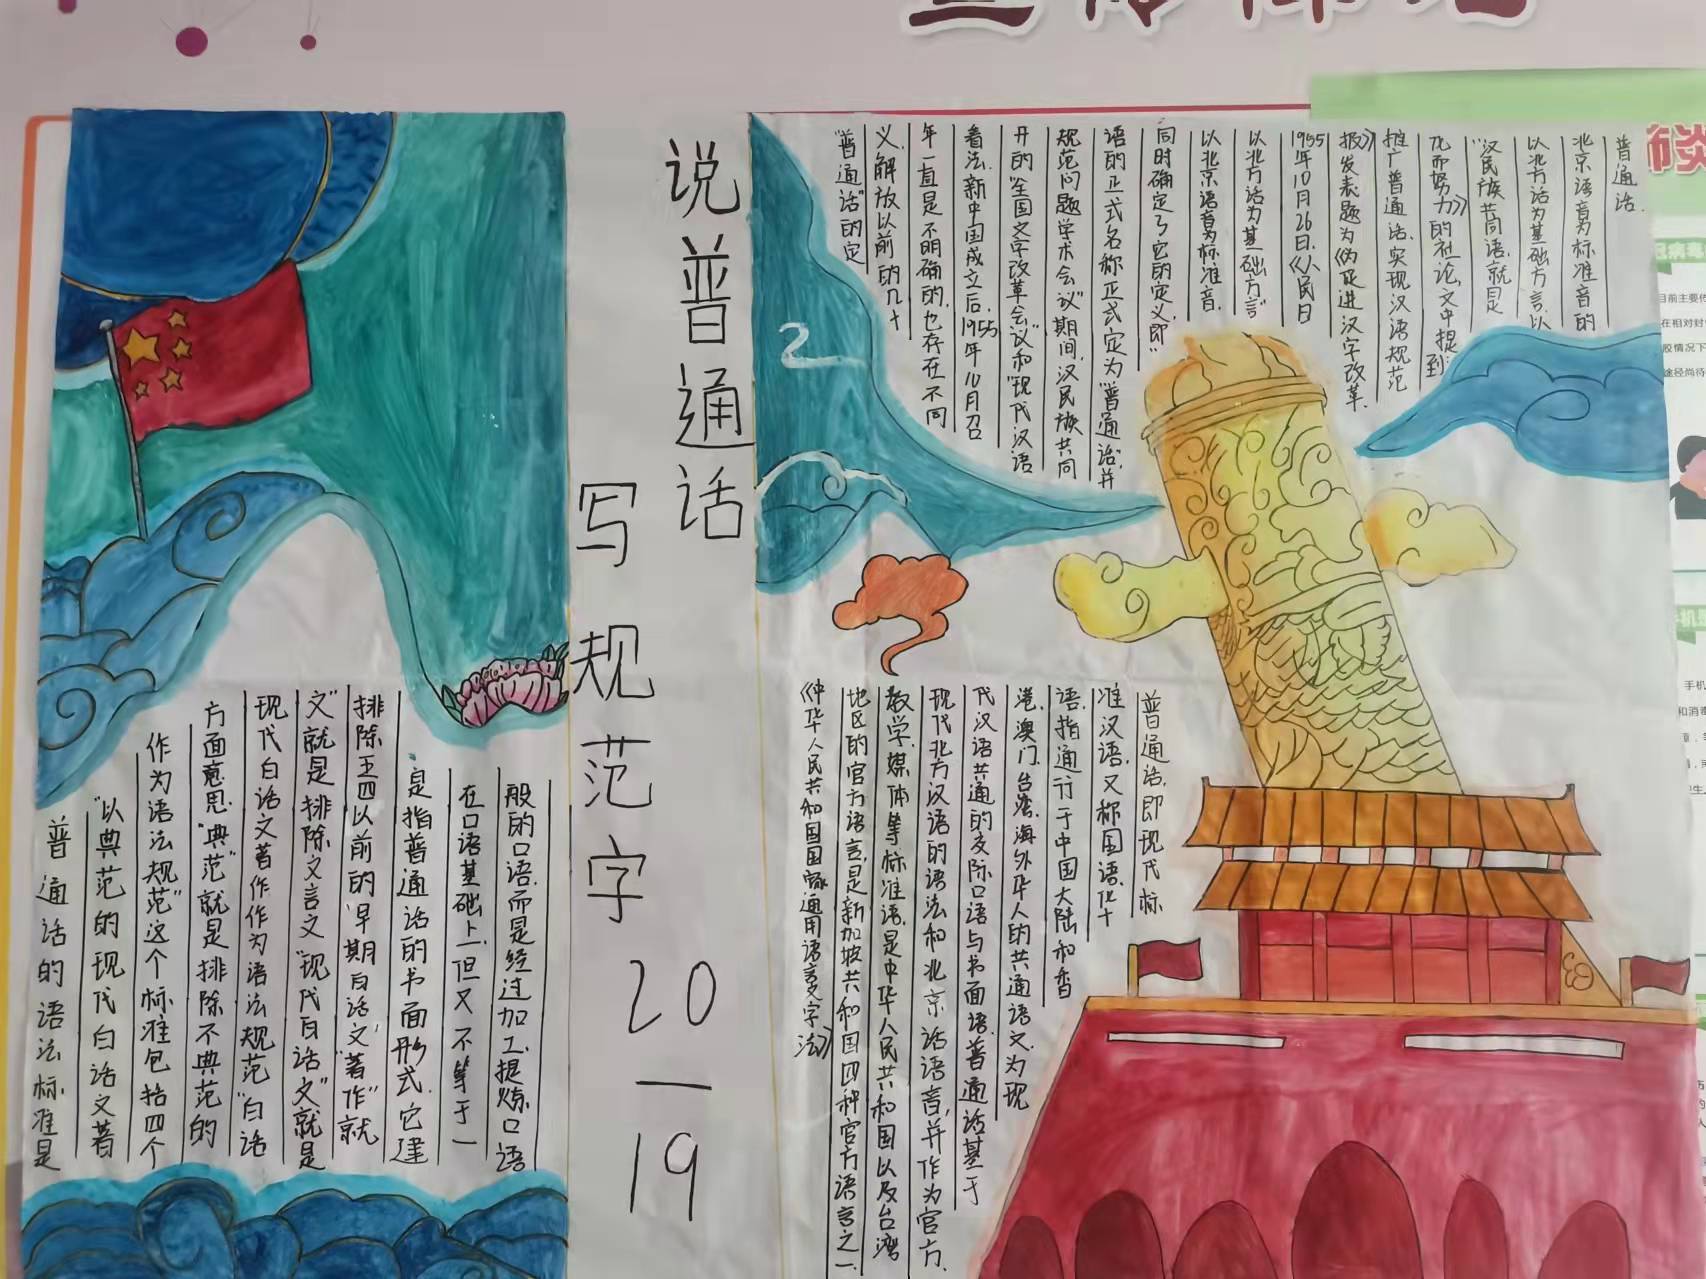 说普通话
写规范字
20—19
普通话的语法标准是
“以典范的现代白话文著
作为语法规范”这个标准包括四个
方面意思:“典范”就是排除不典范的
现代白话文著作作为语法规范“白话
文”就是排除文言文“现代白话文”就是
排除五四以前的早期白话文“著作”就
是指普通话的书面形式,它建
在口语基础上,但又不等于一
般的口语,而是经过加工、提炼口语
2
“普通话”的定
义,解放以前的几十
年一直是不明确的,也存在不同
看法。新中国成立后,1955年10月召
开的“全国文字改革会议”和“现代汉语
规范问题学术会议”期间,汉民族共同
语的正式名称正式定为“普通话”,并
同时确定了它的定义,即“
以北京语音为标准音,
以北方话为基础方言”
1955年10月26日,《人民日
报》发表题为《为促进汉字改革、
推广普通话、实现汉语规范
化而努力》的社论,文中提到:
“汉民族共同语,就是
以北方话为基础方言,以
北京语音为标准音的
普通话.
普通话,即现代标
准汉语,又称国语、华
语,指通行于中国大陆和香
港、澳门、台湾、海外华人的共通语文,为现
代汉语共通的交际口语与书面语。普通话基于
现代北方汉语的语法和北京话语音,并作为官方、
教学、媒体等标准语,是中华人民共和国以及台湾
地区的官方语言,是新加坡共和国四种官方语言之一
《中华人民共和国国家通用语言文字法》
肺炎
冠病毒